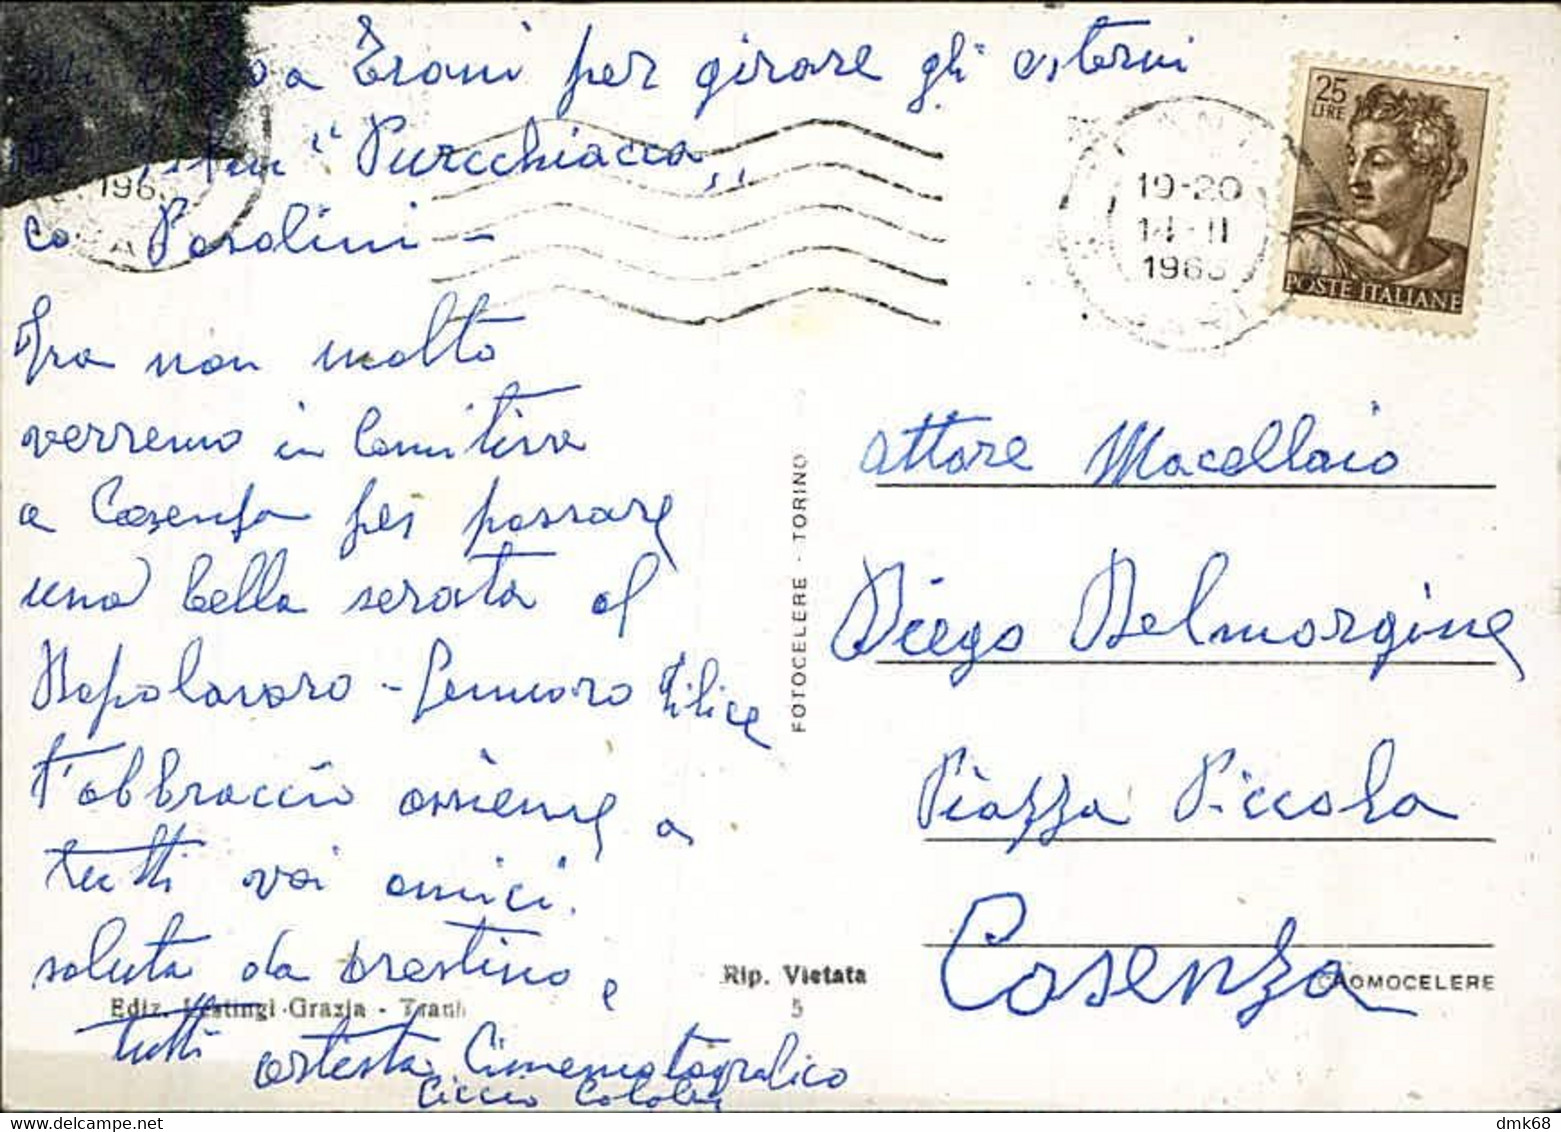 a Trani per girare gli esterni
film "Purcchiacca"
co Pasolini -
Fra non molto
verremo in Comitiva
a Cosenza per passare
una bella serata al
Dopolavoro - Gennaro Filice
T'abbraccio assieme a
tutti voi amici.
saluta da Orestino e
tutti
artista Cinematografico
Ciccio
196
25
LIRE
POSTE ITALIANE
19-20
14-11
196
attore Macellaio
Diego Belmorgine
Piazza Piccola
Cosenza
FOTOCELERE - TORINO
Rip. Vietata
5
CROMOCELERE
Ediz. Grazia - Trani
dmk68